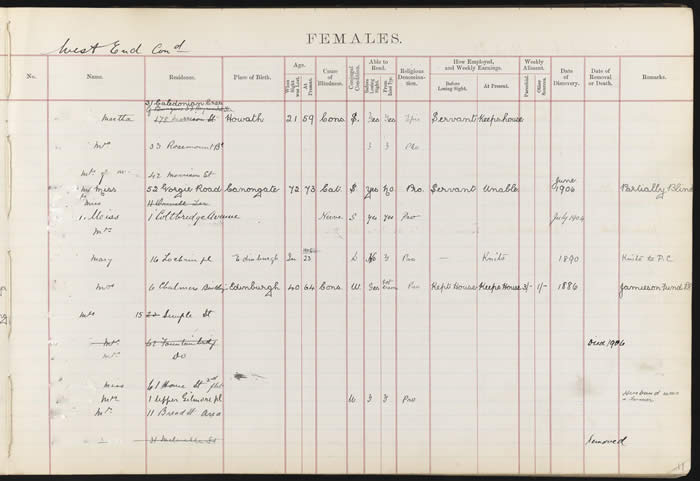 West End Cond
FEMALES.
No. Name. Residence. Place of Birth. Age. When Sight was Lost. At Present. Cause of Blindness. Conjugal Condition. Able to Read. Before Losing Sight. Religious Denomination. How Employed, and Weekly Earnings. Before Losing Sight. At Present. Weekly Aliment. Parochial. Other Sources. Date of Discovery. Date of Removal or Death. Remarks.
31 Caledonian Cres
Martha 178 Morrison St Howath 21 59 Cons S. Yes Yes Servant Keeps house
Mrs 33 Rosemount Bs Y Y Pro
42 Morrison St
Miss 52 Gorgie Road Canongate 72 73 Cat. S Yes No Pro. Servant Unable June 1906 Partially Blind
Miss
1. Meiss 1 Coltbridge Avenue Nerve S yes yes Pro July 1904
Mrs
Mary 16 Lochrin pl Edinburgh In 23 S No Y Pro — Knits 1890 Knits to P.C.
Mrs 6 Chalmers Bdg Edinburgh 40 64 Cons. W. Yes Pro Kept House Keeps House 3/- 1/- 1886 Jamieson Fund
Mrs 15 22 Semple St
Mrs 62 Fountainbdg Died 1906
Mrs Do
Miss 61 Home St 2nd flat
Mrs 1 Upper Gilmore pl W Y Y Pro Husband was a
Mrs 11 Bread St Area
Removed